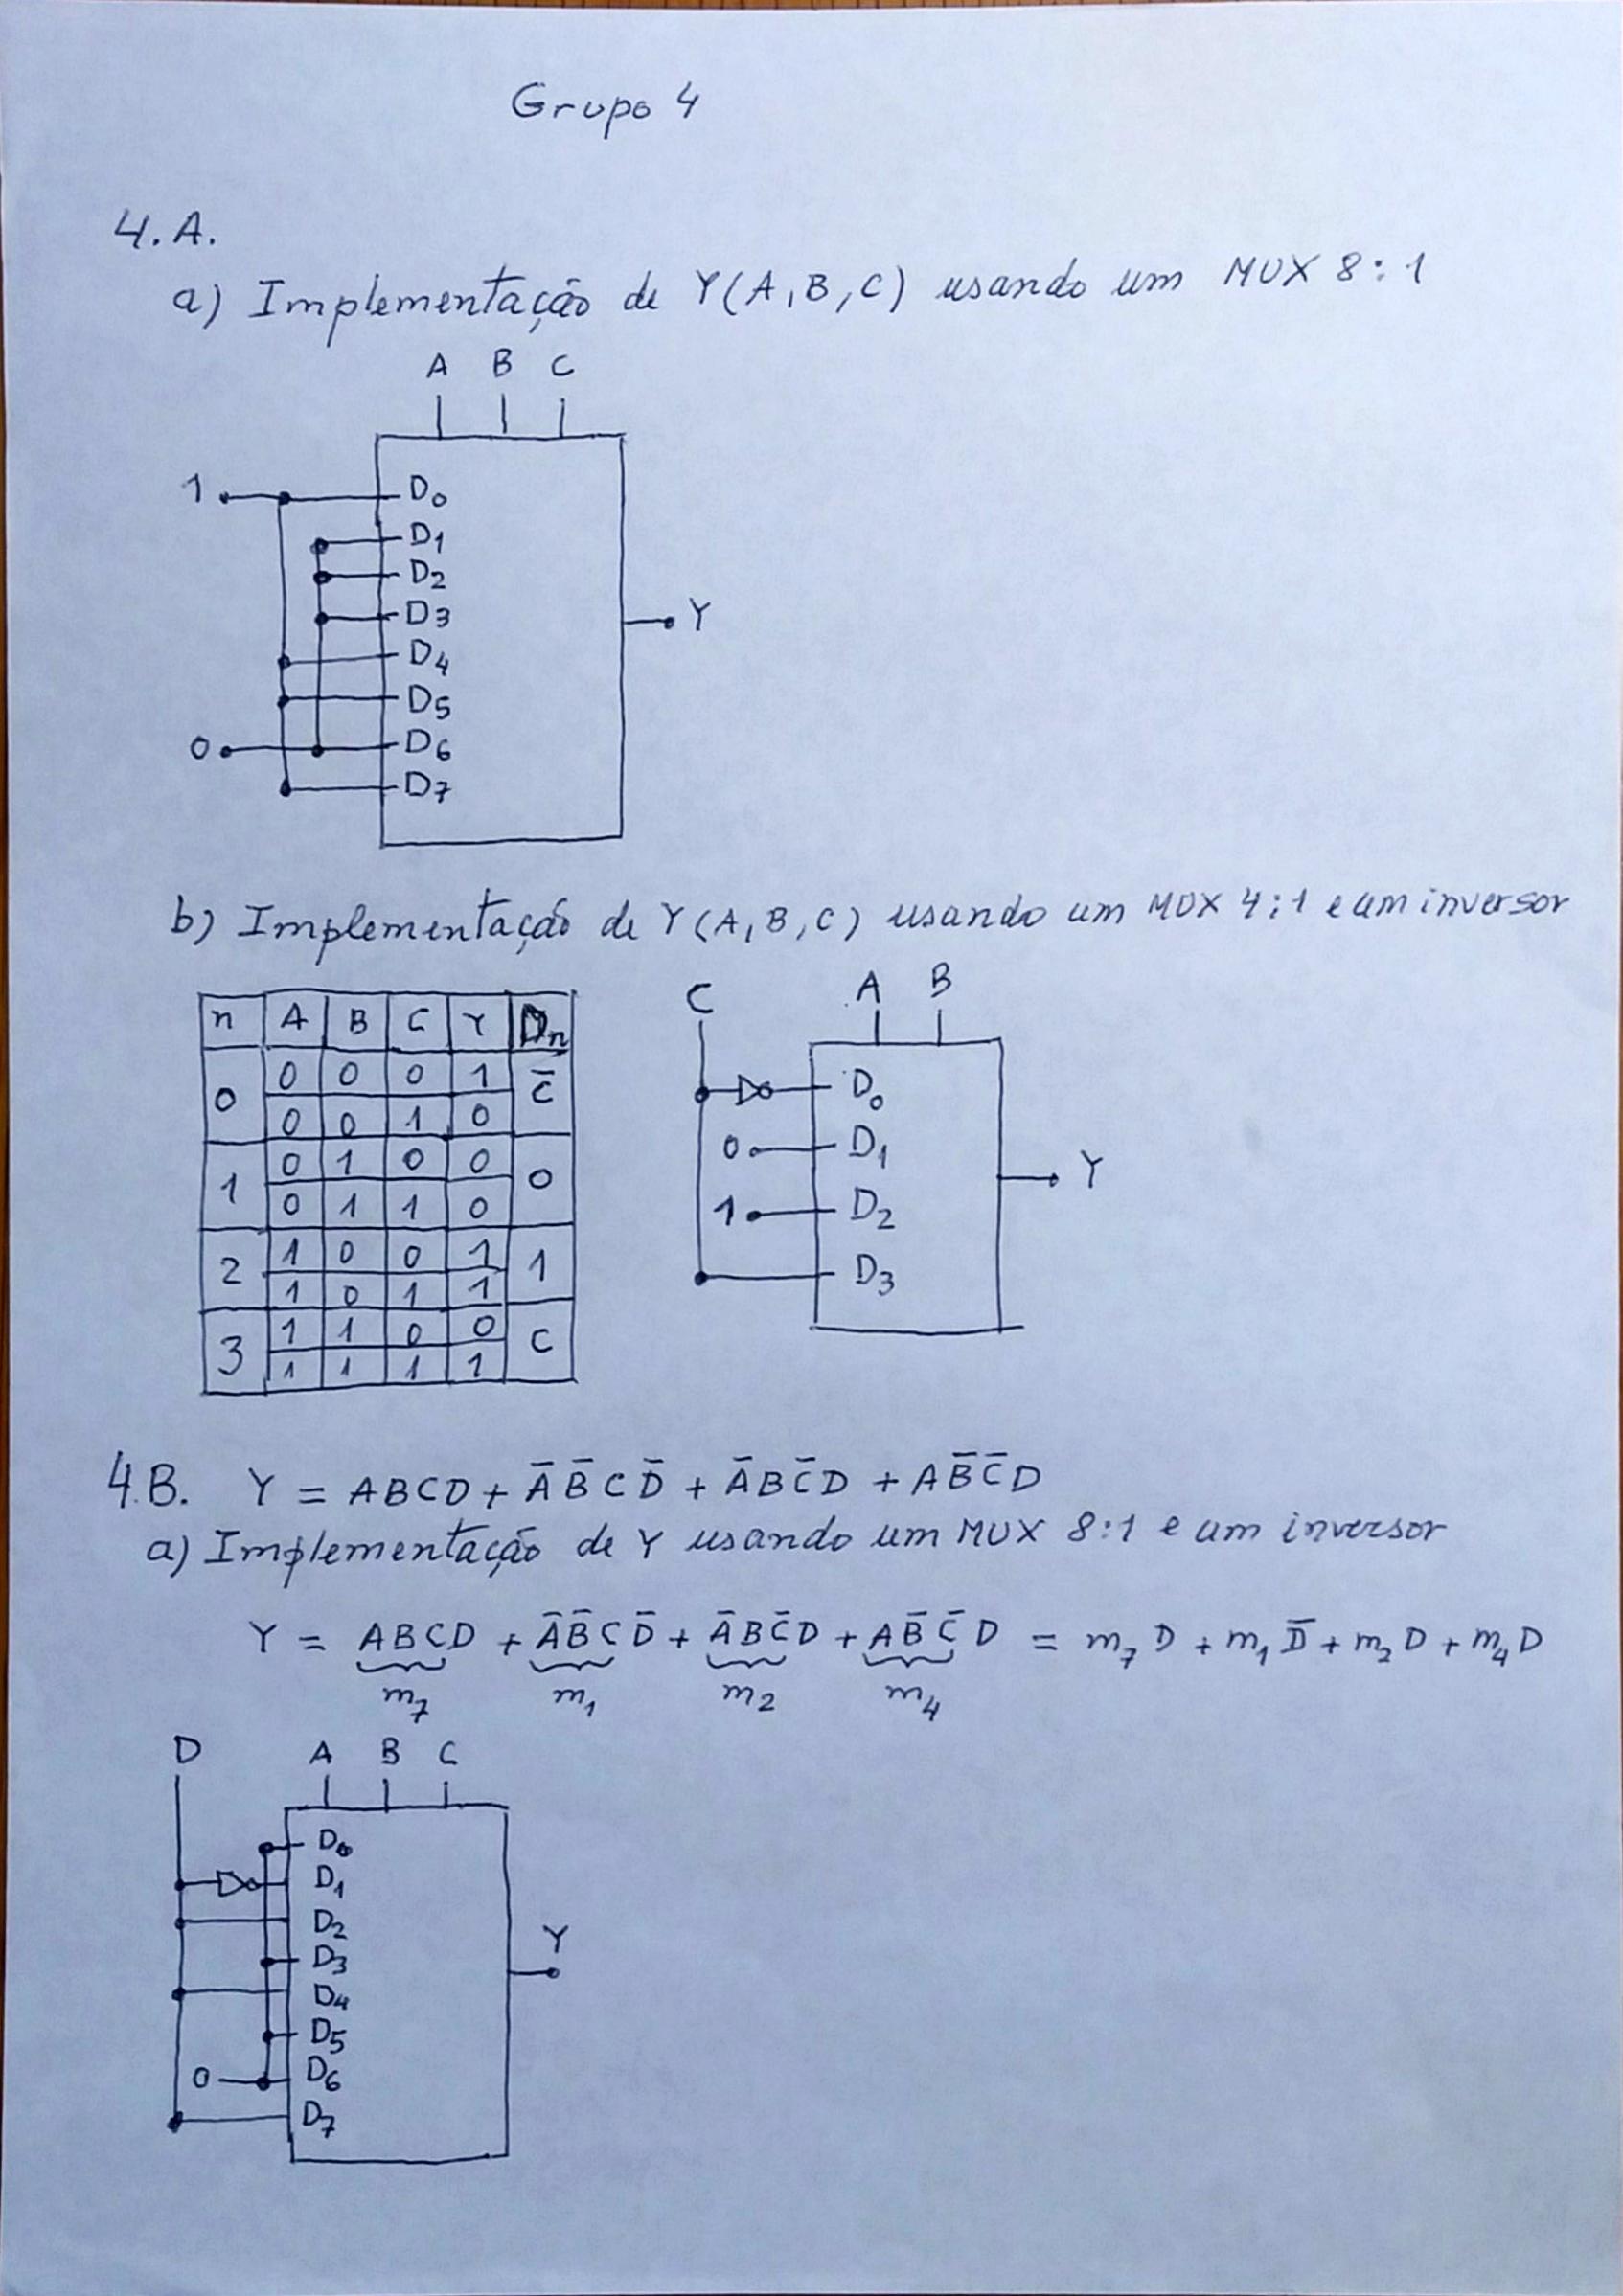 Grupo 4
4.A.
a) Implementação de Y(A,B,C) usando um MUX 8:1
A B C
1 D0
D1
D2
D3
Y
D4
D5
0 D6
D7
b) Implementação de Y(A,B,C) usando um MUX 4:1 e um inversor
n A B C Y Dn
0 0 0 0 1 C̅
0 0 1 0
1 0 1 0 0 0
0 1 1 0
2 1 0 0 1 1
1 0 1 1
3 1 1 0 0 C
1 1 1 1
C A B
D0
0 D1
Y
1 D2
D3
4.B. Y = ABCD + A̅ B̅ C D̅ + A̅ B C̅ D + A B̅ C̅ D
a) Implementação de Y usando um MUX 8:1 e um inversor
Y = ABCD + A̅ B̅ C D̅ + A̅ B C̅ D + A B̅ C̅ D = m7 D + m1 D̅ + m2 D + m4 D
m7 m1 m2 m4
D A B C
D0
D1
D2
Y
D3
D4
D5
0 D6
D7